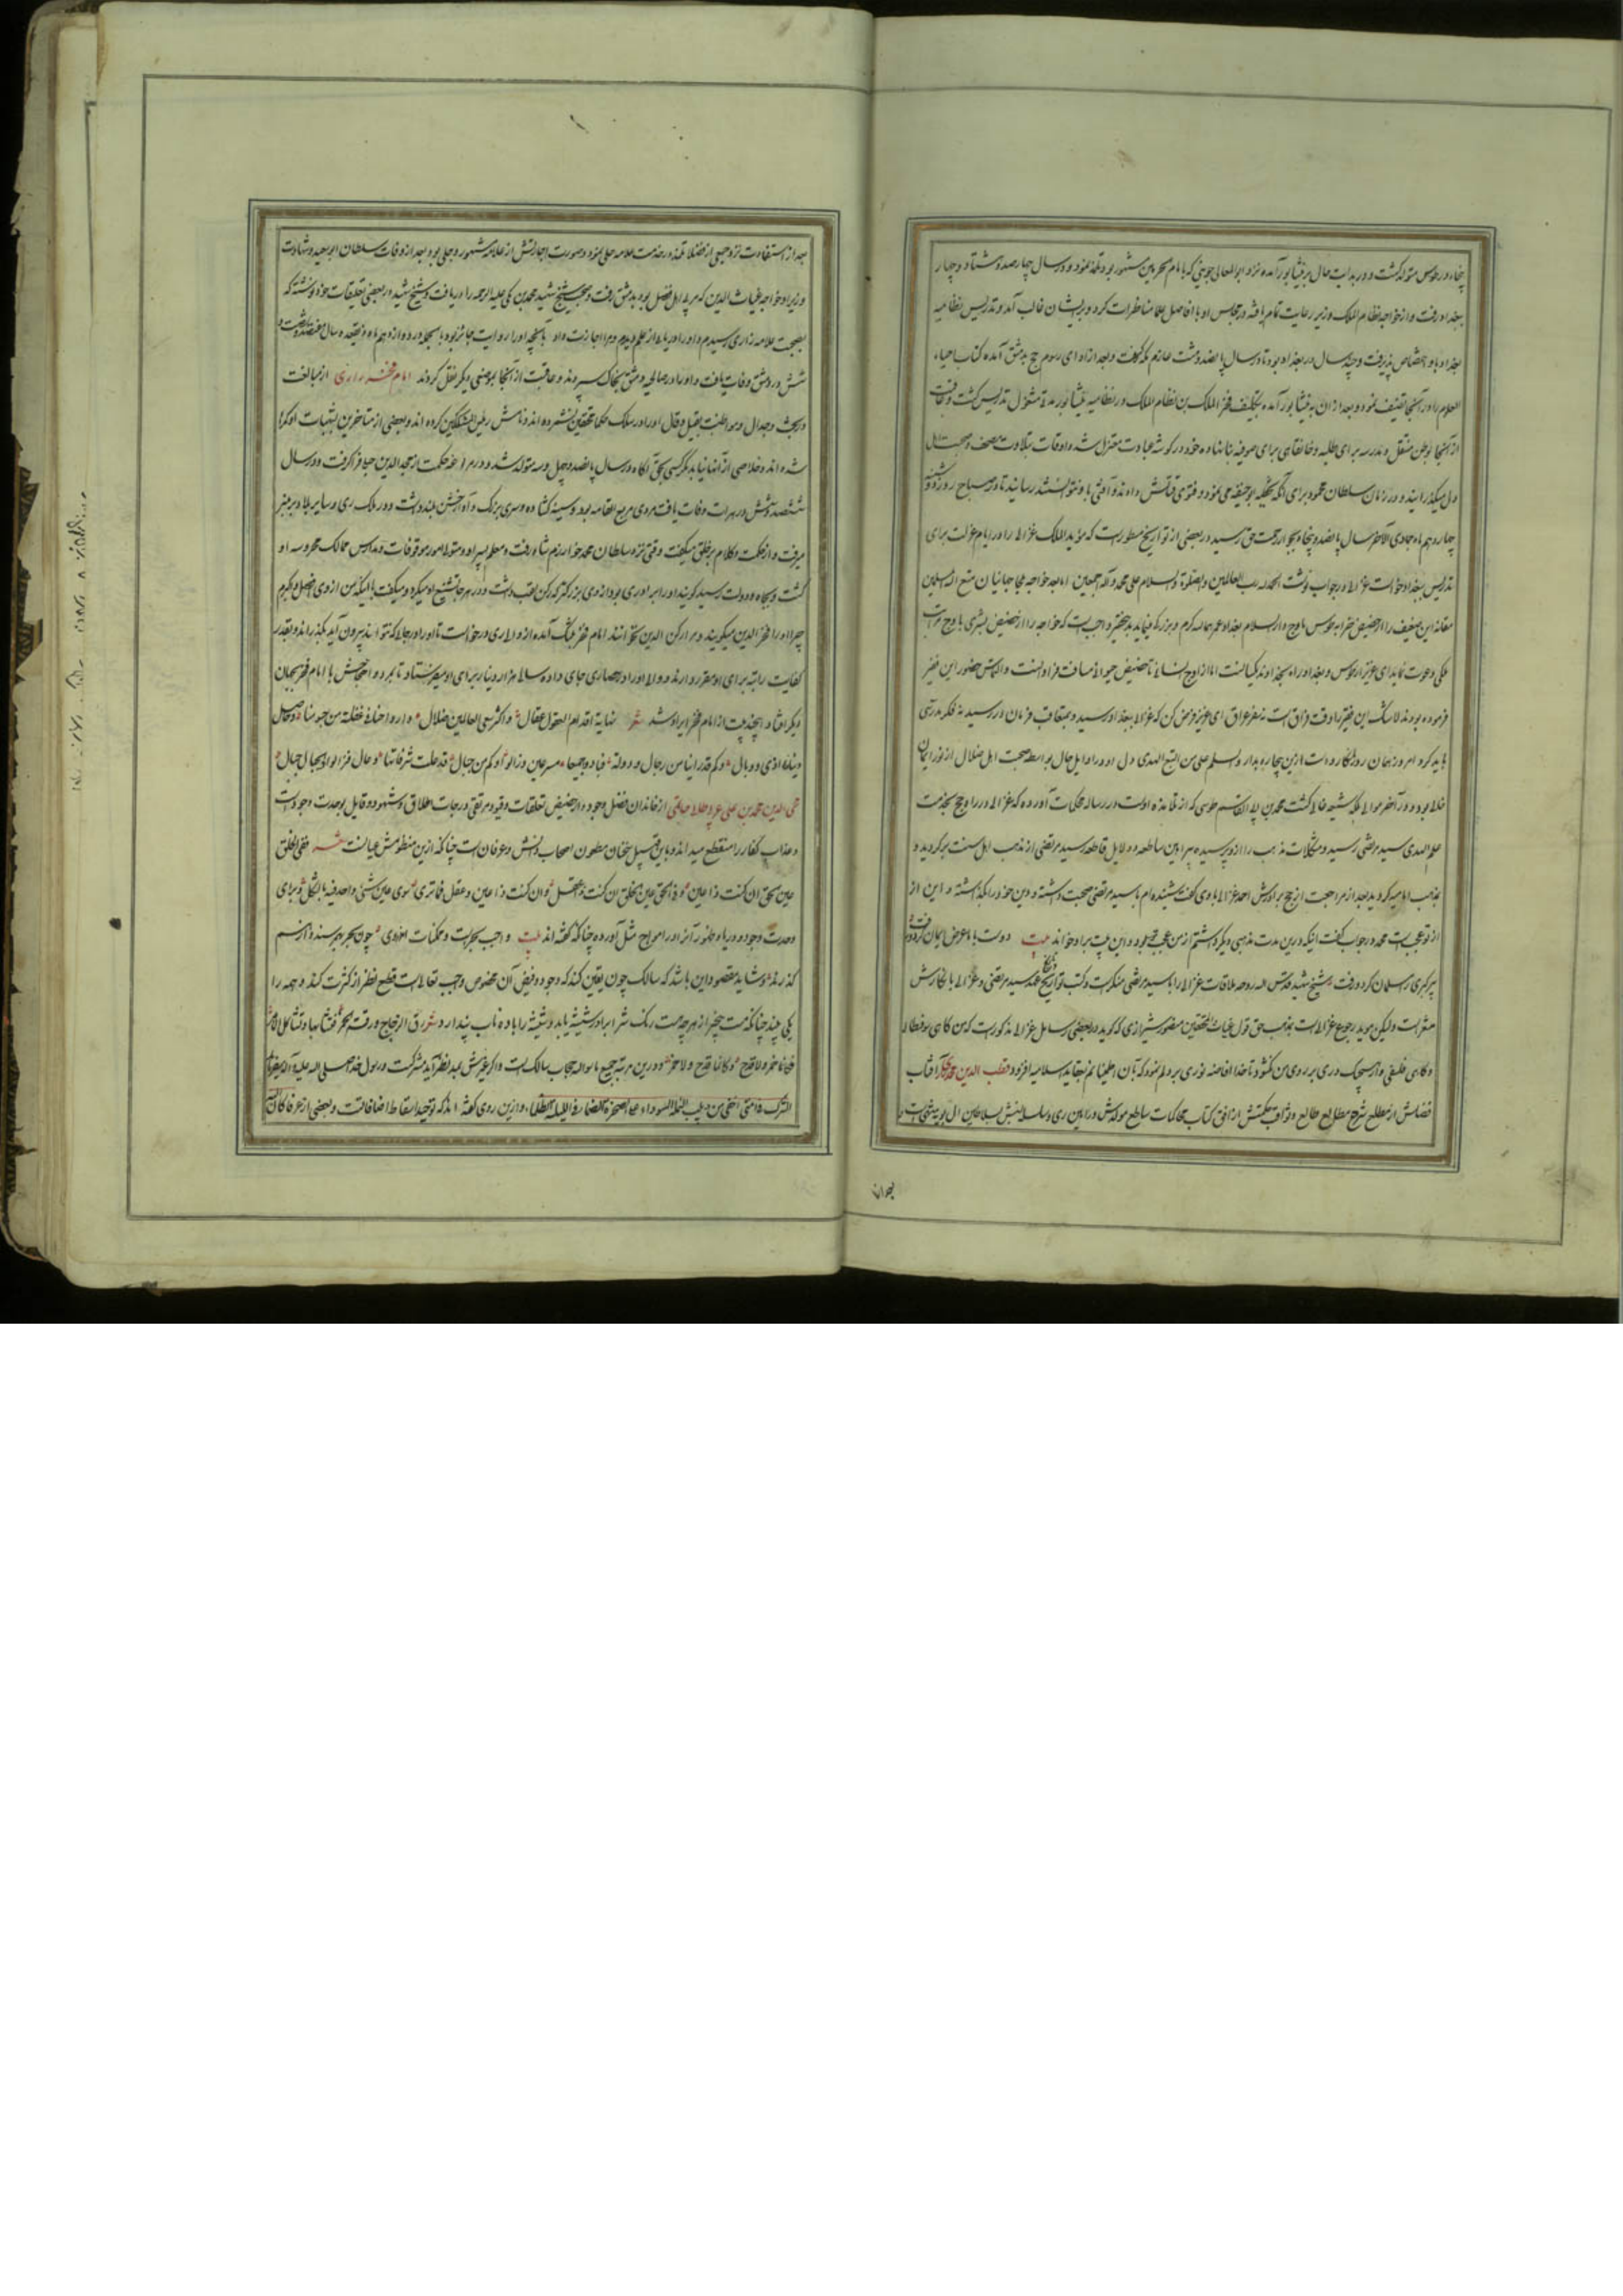 پنجاه در طوس متولد گشت و در بدایت حال بر نیشابور آمده نزد ابو المعالی جوینی که بامام الحرمین مشهور بود تلمذ نمود و در سال چهار صد و هشتاد و چهار
ببغداد رفت و از خواجه نظام الملک وزیر رعایت تمام یافته در مجالس او با افاضل علما مناظرات کرد و بریشان غالب آمد و تدریس نظامیه
بغداد باو اختصاص پذیرفت و چند سال در بغداد بود تا در سال پانصد و هشت عازم مکه گشت و بعد از ادای رسوم حج بدمشق آمده کتاب احیاء
العلوم را در آنجا تصنیف نمود و بعد از ان به نیشابور آمده بتکلیف فخر الملک بن نظام الملک در نظامیه نیشابور مدة مشغول تدریس گشت و عاقبت
از آنجا بوطن منتقل و مدرسه برای طلبه و خانقاهی برای صوفیه بنا نهاده خود در گوشه عبادت معتزل شد و اوقات بتلاوت مصحف و صحبت اهل
دل میگذرانید و در زمان سلطان محمود برای آنکه تخطئه ابو حنیفه می نمود فتوی قتلش دادند و آفتی باو نتوانستند رسانید تا در صباح روز دوشنبه
چهاردهم ماه جمادی الآخر سال پانصد و پنجاه بجوار رحمت حق رسید در بعضی از تواریخ مسطورست که مؤید الملک غزالی را در ایام عزلت برای
تدریس ببغداد خواست غزالی در جواب نوشت الحمد لله رب العالمین والصلوة والسلام علی محمد و آله اجمعین اما بعد خواجه ملجا جهانیان متع الله المسلمین
ببقائه این ضعیف را از حضیض خرابه طوس باوج دار السلام بغداد عمرها الله کرم و بزرگی مینماید بدین حقیر واجبست که خواجه را از حضیض بشری باوج مراتب
ملکی دعوت نماید ای عزیز از طوس و بغداد راه بخداوند یکیانست اما از اوج انسانی تا حضیض حیوانی مسافت فراوانست والتماس حضور این فقیر
فرموده بودند لاشک این فقیر را وقت فراق است نه سفر عراق ای عزیز فرض کن که غزالی ببغداد رسید و متعاقب فرمان در رسید نه فکر مدرسی
باید کرد امروز همان روز انگار و دست ازین بیچاره بدار والسلم علی من اتبع الهدی و دل او در اوایل حال بواسطه صحبت اهل ضلال از نور ایمان
خالی بود و در آخر موالی بلکه شیعه غالی گشت محمد بن ابی القاسم طوسی که از تلامذه اوست در رساله محکمات آورده که غزالی در راه حج بخدمت
علم الهدی سید مرتضی رسید و مشکلات مذهب را ازو پرسیده ببراهین ساطعه و دلایل قاطعه سید مرتضی از مذهب اهل سنت برگردید و
بمذهب امامیه گروید بعد از مراجعت از حج برادرش احمد غزالی باوی گفت شنیده ام با سید مرتضی صحبت داشته و دین خود را گذاشته و این از
از تو عجبست محمد در جواب گفت اینکه درین مدت مذهبی دیگر داشتم از من عجب تر بود و این بیت بر او خواند بیت دوست با ما عرض ایمان کرد و رفت
پیر گبری را مسلمان کرد و رفت شیخ شهید قدس الله روحه ملاقات غزالی را با سید مرتضی منکرست و کتب تواریخ تاریخ عهد سید مرتضی و غزالی با نگارش
مشعرست ولیکن موید رجوع غزالیست بمذهب حق قول غیاث المحققین منصور شیرازی که گوید در بعضی رسایل غزالی مذکورست که من گاهی سوفسطائی
و گاهی فلسفی و از هیچیک دری بر روی من نگشود تا خدا افاضه نوری بر دلم نمود که بآن اطمینانم بعقاید اسلامیه افزود قطب الدین محمد رازی آفتاب
فضایلش از مطلع شرح مطالع طالع و ثواقب حکمتش از افق کتاب محاکمات ساطع مولدش ورامین ری و سلسله نسبش بسلاطین آل بویه منتهیست و
بعد از
بعد از استفادت نزد جمعی از فضلا تلمذ در خدمت علامه حلی نمود و صورت اجازتش از علامه مشهور و جلی بود بعد از وفات سلطان ابو سعید و شهادت
وزیر او خواجه غیاث الدین که مربی اهل فضل بود بدمشق رفت و بموجب شیخ شهید محمد بن مکی علیه الرحمه را دریافت و شیخ شهید در بعضی تعلیقات خود نوشته که
بصحبت علامه رازی رسیدم و او را دریایی از علم دیدم و مرا اجازت داد بآنچه او را روایت جائز بود بالجمله در دوازدهم ماه ذیقعده سال هفتصد و شصت و
شش در دمشق وفات یافت و او را در صالحیه دمشق بخاک سپردند و عاقبت از آنجا بموضعی دیگر نقل کردند امام فخر رازی از مبالغت
در بحث و جدال و مواظبت بقیل و قال او را در سلک حکما محققین نشمرده اند و نامش رئیس المشککین کرده اند و بعضی از متاخرین بشبهات او گمراه
شده اند و خلاصی از آنها نیابد مگر کسی بحق آگاه در سال پانصد و چهل و سه متولد شد و در مراغه حکمت از مجد الدین جیلی فرا گرفت و در سال
ششصد و شش در هرات وفات یافت مردی مربع القامه بود و سینه گشاده و سری بزرگ و آواز خشن بلند داشت و در ملک ری و سایر بلاد بر منبر
میرفت و از حکمت و کلام بر خلق میگفت وقتی نزد سلطان محمد خوارزم شاه رفت و معلم پسر او و متولی امور موقوفات و مدارس ممالک محروسه او
گشت و بجاه و دولت رسید گویند او را برادری بود از وی بزرگتر که رکن لقب داشت و در هر جا تشنیع او میکرد و میگفت با اینکه من از وی افضل و اکبرم
چرا او را فخر الدین میگویند و مرا رکن الدین نمیخوانند امام فخر بتنگ آمده از والی ری درخواست تا او را در جایی که نتواند بیرون آید بگذراند و بقدر
کفایت راتبه برای او مقرر دارند والی او را در حصاری جای داده سالی هزار دینار برای او میفرستاد تا بمرد و احتجاجش با امام فخر بجهان
دیگر افتاد این چند بیت از امام فخر ایراد شد شعر نهایة اقدام العقول عقال و اکثر سعی العالمین ضلال و ارواحنا فی غفلة من جسومنا و حاصل
دنیانا اذی و وبال و کم قد رأینا من رجال و دولة فبادوا جمیعا مسرعین و زالوا و کم من جبال قد علت شرفاتها رجال فزالوا والجبال جبال
محی الدین محمد بن علی عربی طائی حاتمی از خاندان فضل وجود و از حضیض تعلقات و قیود مرتقی درجات اطلاق و شهود و قایل بوحدت وجودست
و عذاب کفار را منقطع میداند و باین قبیل سخنان مطعون اصحاب دانش و عرفان است چنانکه ازین منظومش عیانست شعر ففی الخلق
عین الحق ان کنت ذا عین و فی الحق عین الخلق ان کنت ذا عقل و ان کنت ذا عین و عقل فما تری سوی عین شیء واحد فیه بالشکل و برای
وحدت وجود دریا و ظهور آنرا در امواج مثل آورده چنانکه گفته اند بیت واجب بحرست و ممکنات امواج چون بحر رسند و از رسم
گذرند و شاید مقصود این باشد که سالک چون یقین کند که وجود و فیض آن مخصوص واجب تعالی است قطع نظر از کثرت کند و همه را
یکی بیند چنانکه مست بیخبر از هر چه هست رنگ شراب در شیشه یابد و شیشه را باده ناب پندارد شعر رق الزجاج و رقت الخمر فتشابها و تشاکل الامر
فکانما خمر ولا قدح و کانما قدح ولا خمر و درین مرتبه جمیع ما سوی الله حجاب سالک است و اگر غیرش بنظر آید مشرکست و رسول خدا صلی الله علیه و آله میفرماید
الشرک فی امتی اخفی من دبیب النملة السوداء علی الصخرة الصماء فی اللیلة الظلماء و ازین روی گفته اند که توحید اسقاط اضافاتست و بعضی از عرفا کان